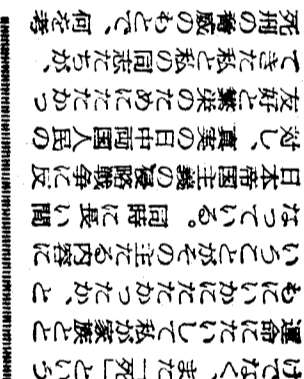 けでなく、また「死」という
運命にたいして私が家族とと
もにいかにたたかったか、と
いうことがその主たる内容に
なっている。同時に長い間
日本帝国主義の侵略戦争に反
対し、真実の日中両国人民の
友好と繁栄のためにたたかっ
てきた私と私の同志たちが、
死刑の脅威のもとで、何を考